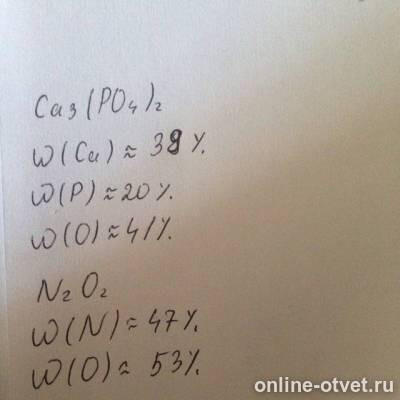 Ca3(PO4)2
W(Ca)≈39%.
W(P)≈20%.
W(O)≈41%.
N2O2
W(N)≈47%.
W(O)≈53%.
online-otvet.ru